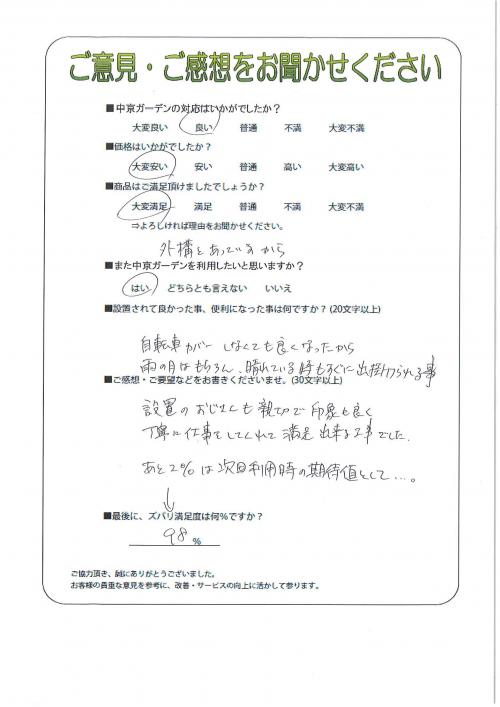 ご意見・ご感想をお聞かせください
■中京ガーデンの対応はいかがでしたか？
大変良い 良い 普通 不満 大変不満
■価格はいかがでしたか？
大変安い 安い 普通 高い 大変高い
■商品はご満足頂けましたでしょうか？
大変満足 満足 普通 不満 大変不満
⇒よろしければ理由をお聞かせください。
外構とあっているから
■また中京ガーデンを利用したいと思いますか？
はい どちらとも言えない いいえ
■設置されて良かった事、便利になった事は何ですか？(20文字以上)
自転車カバーしなくても良くなったから
雨の日はもちろん、晴れている時もすぐに出掛けられる事
■ご感想・ご要望などをお書きくださいませ。(30文字以上)
設置のおじさんも親切で印象も良く
丁寧に仕事をしてくれて満足出来る工事でした。
あと2%は次回利用時の期待値として…。
■最後に、ズバリ満足度は何%ですか？
98 %
ご協力頂き、誠にありがとうございました。
お客様の貴重な意見を参考に、改善・サービスの向上に活かして参ります。